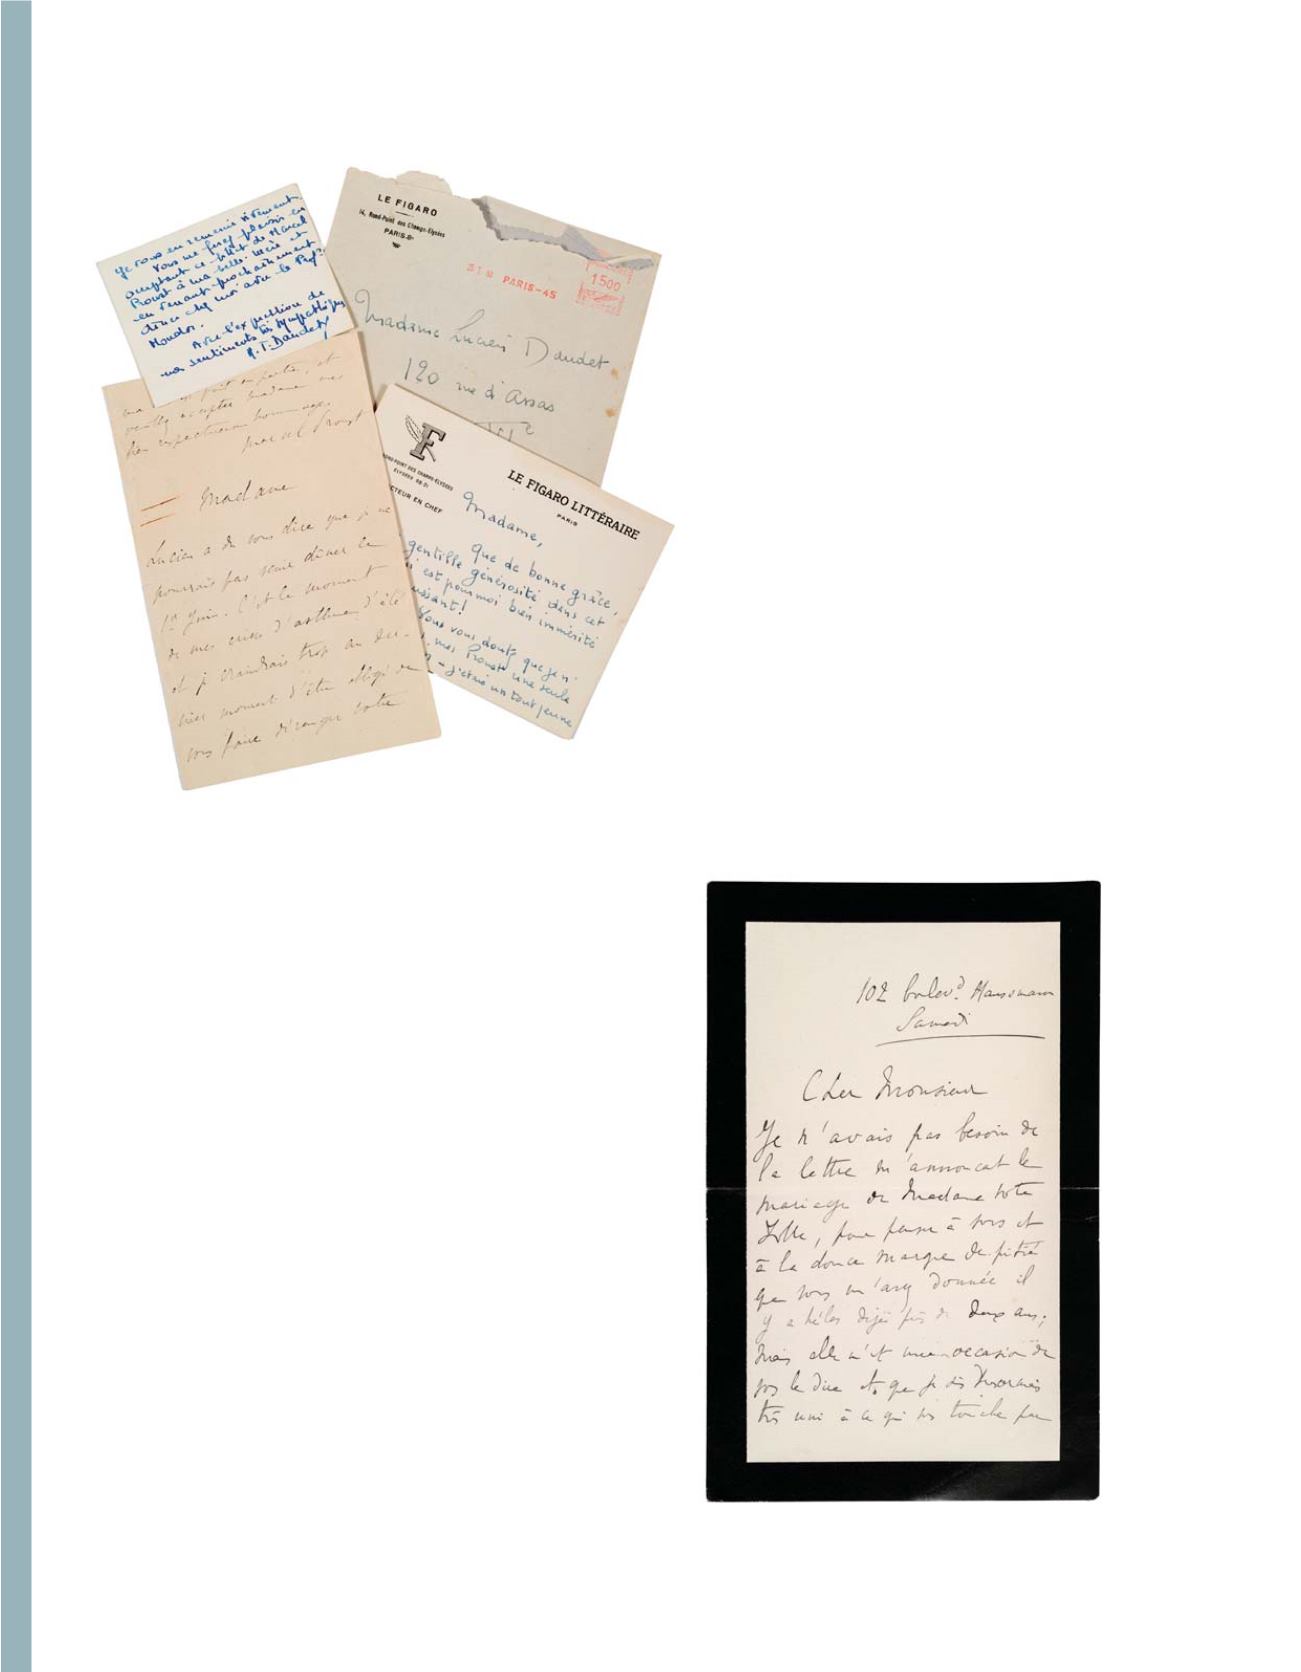 Je vous en remercie vivement.
Vous me ferez plaisir en
acceptant ce billet de Marcel
Proust à ma belle-mère et
en venant prochainement
dîner chez moi avec le Prof.
Mondor.
Avec l'expression de
mes sentiments très sympathiques
Daudet
LE FIGARO
14, Rond-Point des Champs-Elysées
PARIS-8e
PARIS-45
1500
Madame Lucien Daudet
120 rue d'Assas
VIe
fait en partie, et
veuillez accepter madame mes
bien respectueux hommages
Marcel Proust
Madame
Lucien a dû vous dire que je ne
pourrais pas venir dîner le
1er Juin. C'est le moment
de mes crises d'asthme d'été
et je craindrais trop au der-
nier moment d'être obligé de
vous faire déranger votre
F
ROND-POINT DES CHAMPS-ELYSÉES
ELYSÉES
CTEUR EN CHEF
LE FIGARO LITTÉRAIRE
PARIS
Madame,
que de bonne grâce,
gentille générosité dans cet
est pour moi bien immérité
!
Vous vous doutez que j'en
mes Proust une seule
j'étais un tout jeune
102 boulevd. Haussmann
Samedi
Cher Monsieur
Je n'avais pas besoin de
la lettre m'annonçat le
mariage de Madame votre
fille, pour penser à vous et
à la douce marque de pitié
que vous m'avez donnée il
y a hélas déjà près de deux ans;
Mais elle m'est une occasion de
vous le dire et que je suis désormais
très uni à ce qui vous touche par